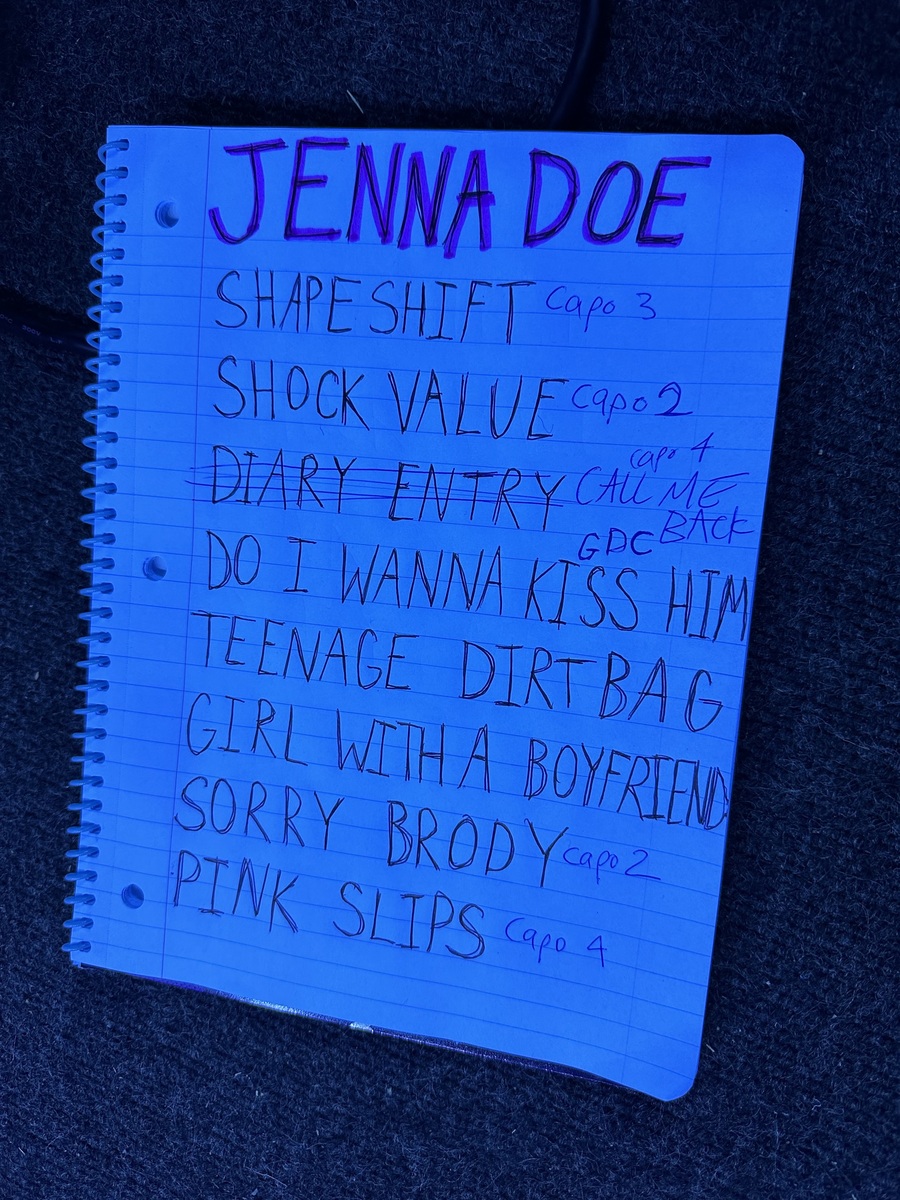 JENNA DOE
SHAPE SHIFT capo 3
SHOCK VALUE capo 2
capo 4
DIARY ENTRY CALL ME
BACK
GDC
DO I WANNA KISS HIM
TEENAGE DIRTBAG
GIRL WITH A BOYFRIEND
SORRY BRODY capo 2
PINK SLIPS capo 4